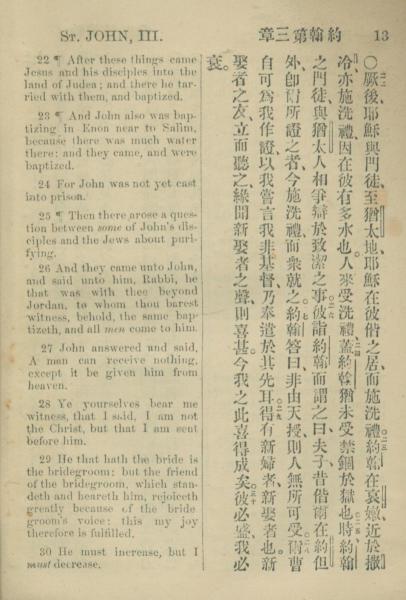 St. JOHN, III.
章三第翰約
13
22 ¶ After these things came
Jesus and his disciples into the
land of Judea; and there he tar-
ried with them, and baptized.
23 ¶ And John also was bap-
tizing in Enon near to Salim,
because there was much water
there: and they came, and were
baptized.
24 For John was not yet cast
into prison.
25 ¶ Then there arose a ques-
tion between some of John's dis-
ciples and the Jews about puri-
fying.
26 And they came unto John,
and said unto him, Rabbi, he
that was with thee beyond
Jordan, to whom thou barest
witness, behold, the same bap-
tizeth, and all men come to him.
27 John answered and said,
A man can receive nothing,
except it be given him from
heaven.
28 Ye yourselves bear me
witness, that I said, I am not
the Christ, but that I am sent
before him.
29 He that hath the bride is
the bridegroom; but the friend
of the bridegroom, which stan-
deth and heareth him, rejoiceth
greatly because of the bride-
groom's voice: this my joy
therefore is fulfilled.
30 He must increase, but I
must decrease.
○厥後、耶穌與門徒至猶太地、耶穌在彼偕之居、而施洗禮、約翰在哀嫩近於撒
冷、亦施洗禮、因在彼有多水也。人來受洗禮、蓋約翰猶未受禁錮於獄也、時約翰
之門徒、與猶太人相爭辯於致潔之事、彼詣約翰而謂之曰、夫子、昔偕爾在約但
外、即爾所證之者、今施洗禮、而衆就之。約翰答曰、非由天授、則人無所可受、爾曹
自可爲我作證、以我嘗言我非基督、乃奉遣於其先耳、得有新婦者、新娶者也。新
娶者之友、立而聽之、緣聞新娶者之聲、則喜甚、今我之此喜得成矣。彼必盛、我必
衰。